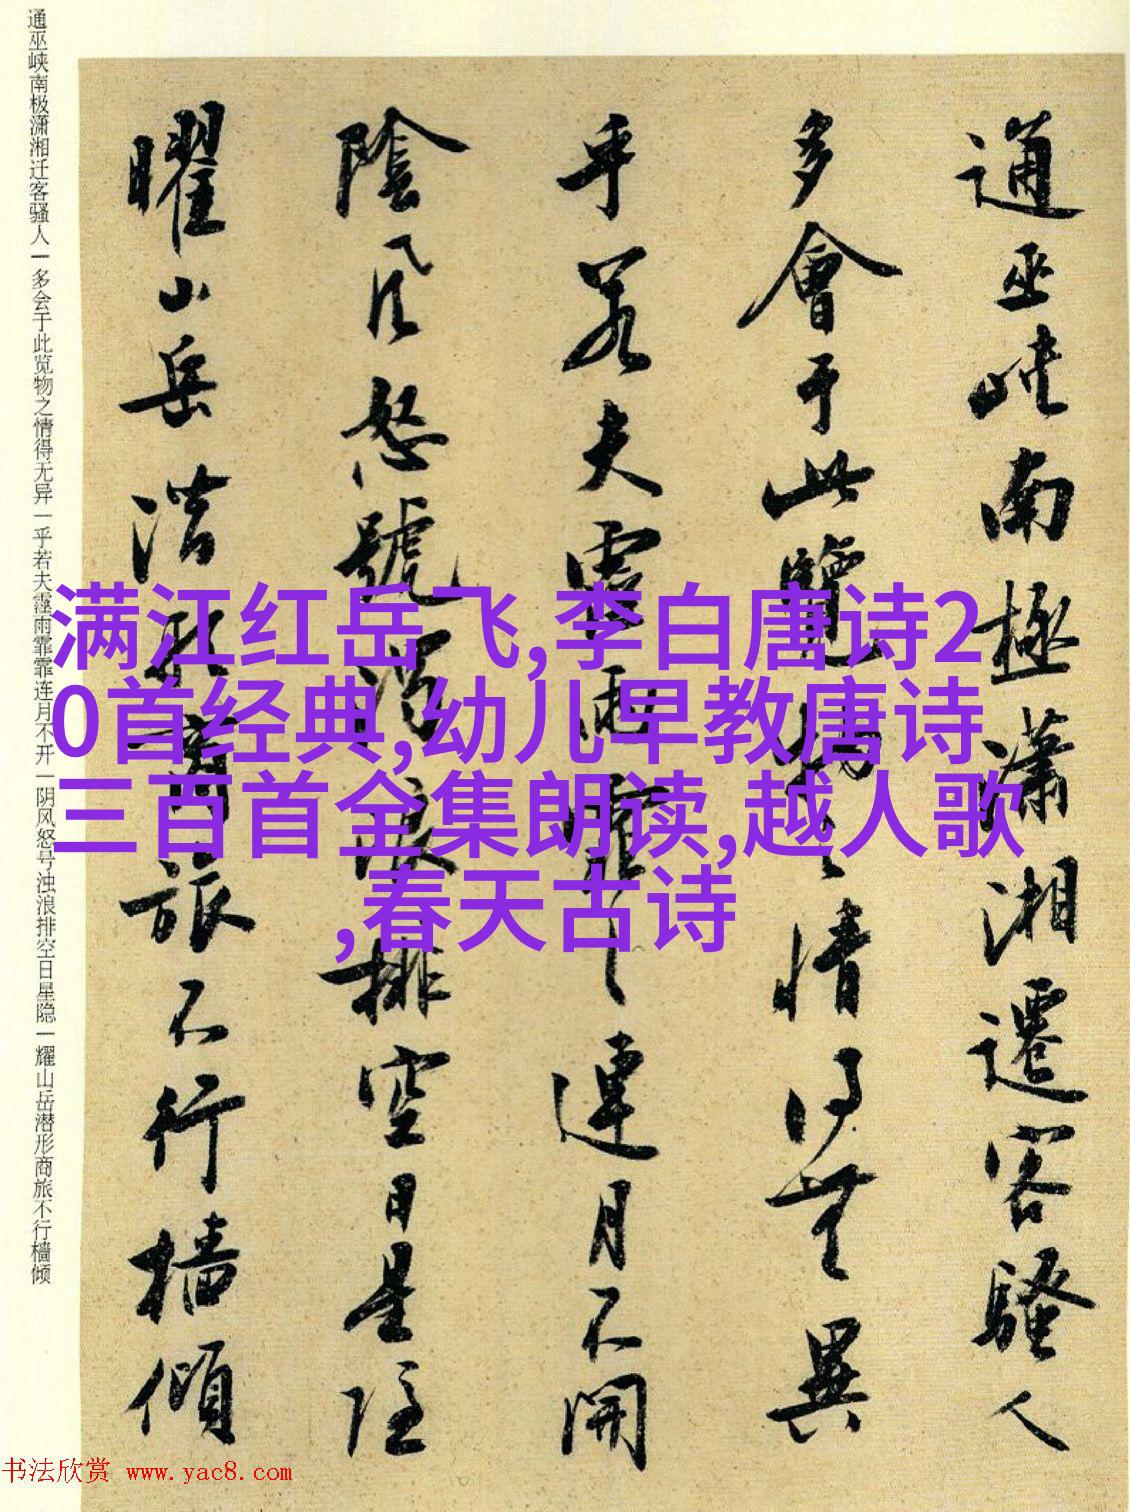 通巫峽南極瀟湘遷客騷人
多會于此覽物之情得無異
乎若夫霪雨霏〻連月不開
陰風怒號濁浪排空日星隱
曜山岳潛形商旅不行檣傾
通巫峡南极潇湘迁客骚人|多会于此览物之情得无异|乎若夫霪雨霏霏连月不开|阴风怒号浊浪排空日星隐|耀山岳潜形商旅不行檣倾
满江红岳飞,李白唐诗2
0首经典,幼儿早教唐诗
三百首全集朗读,越人歌
,春天古诗
书法欣赏 www.yac8.com